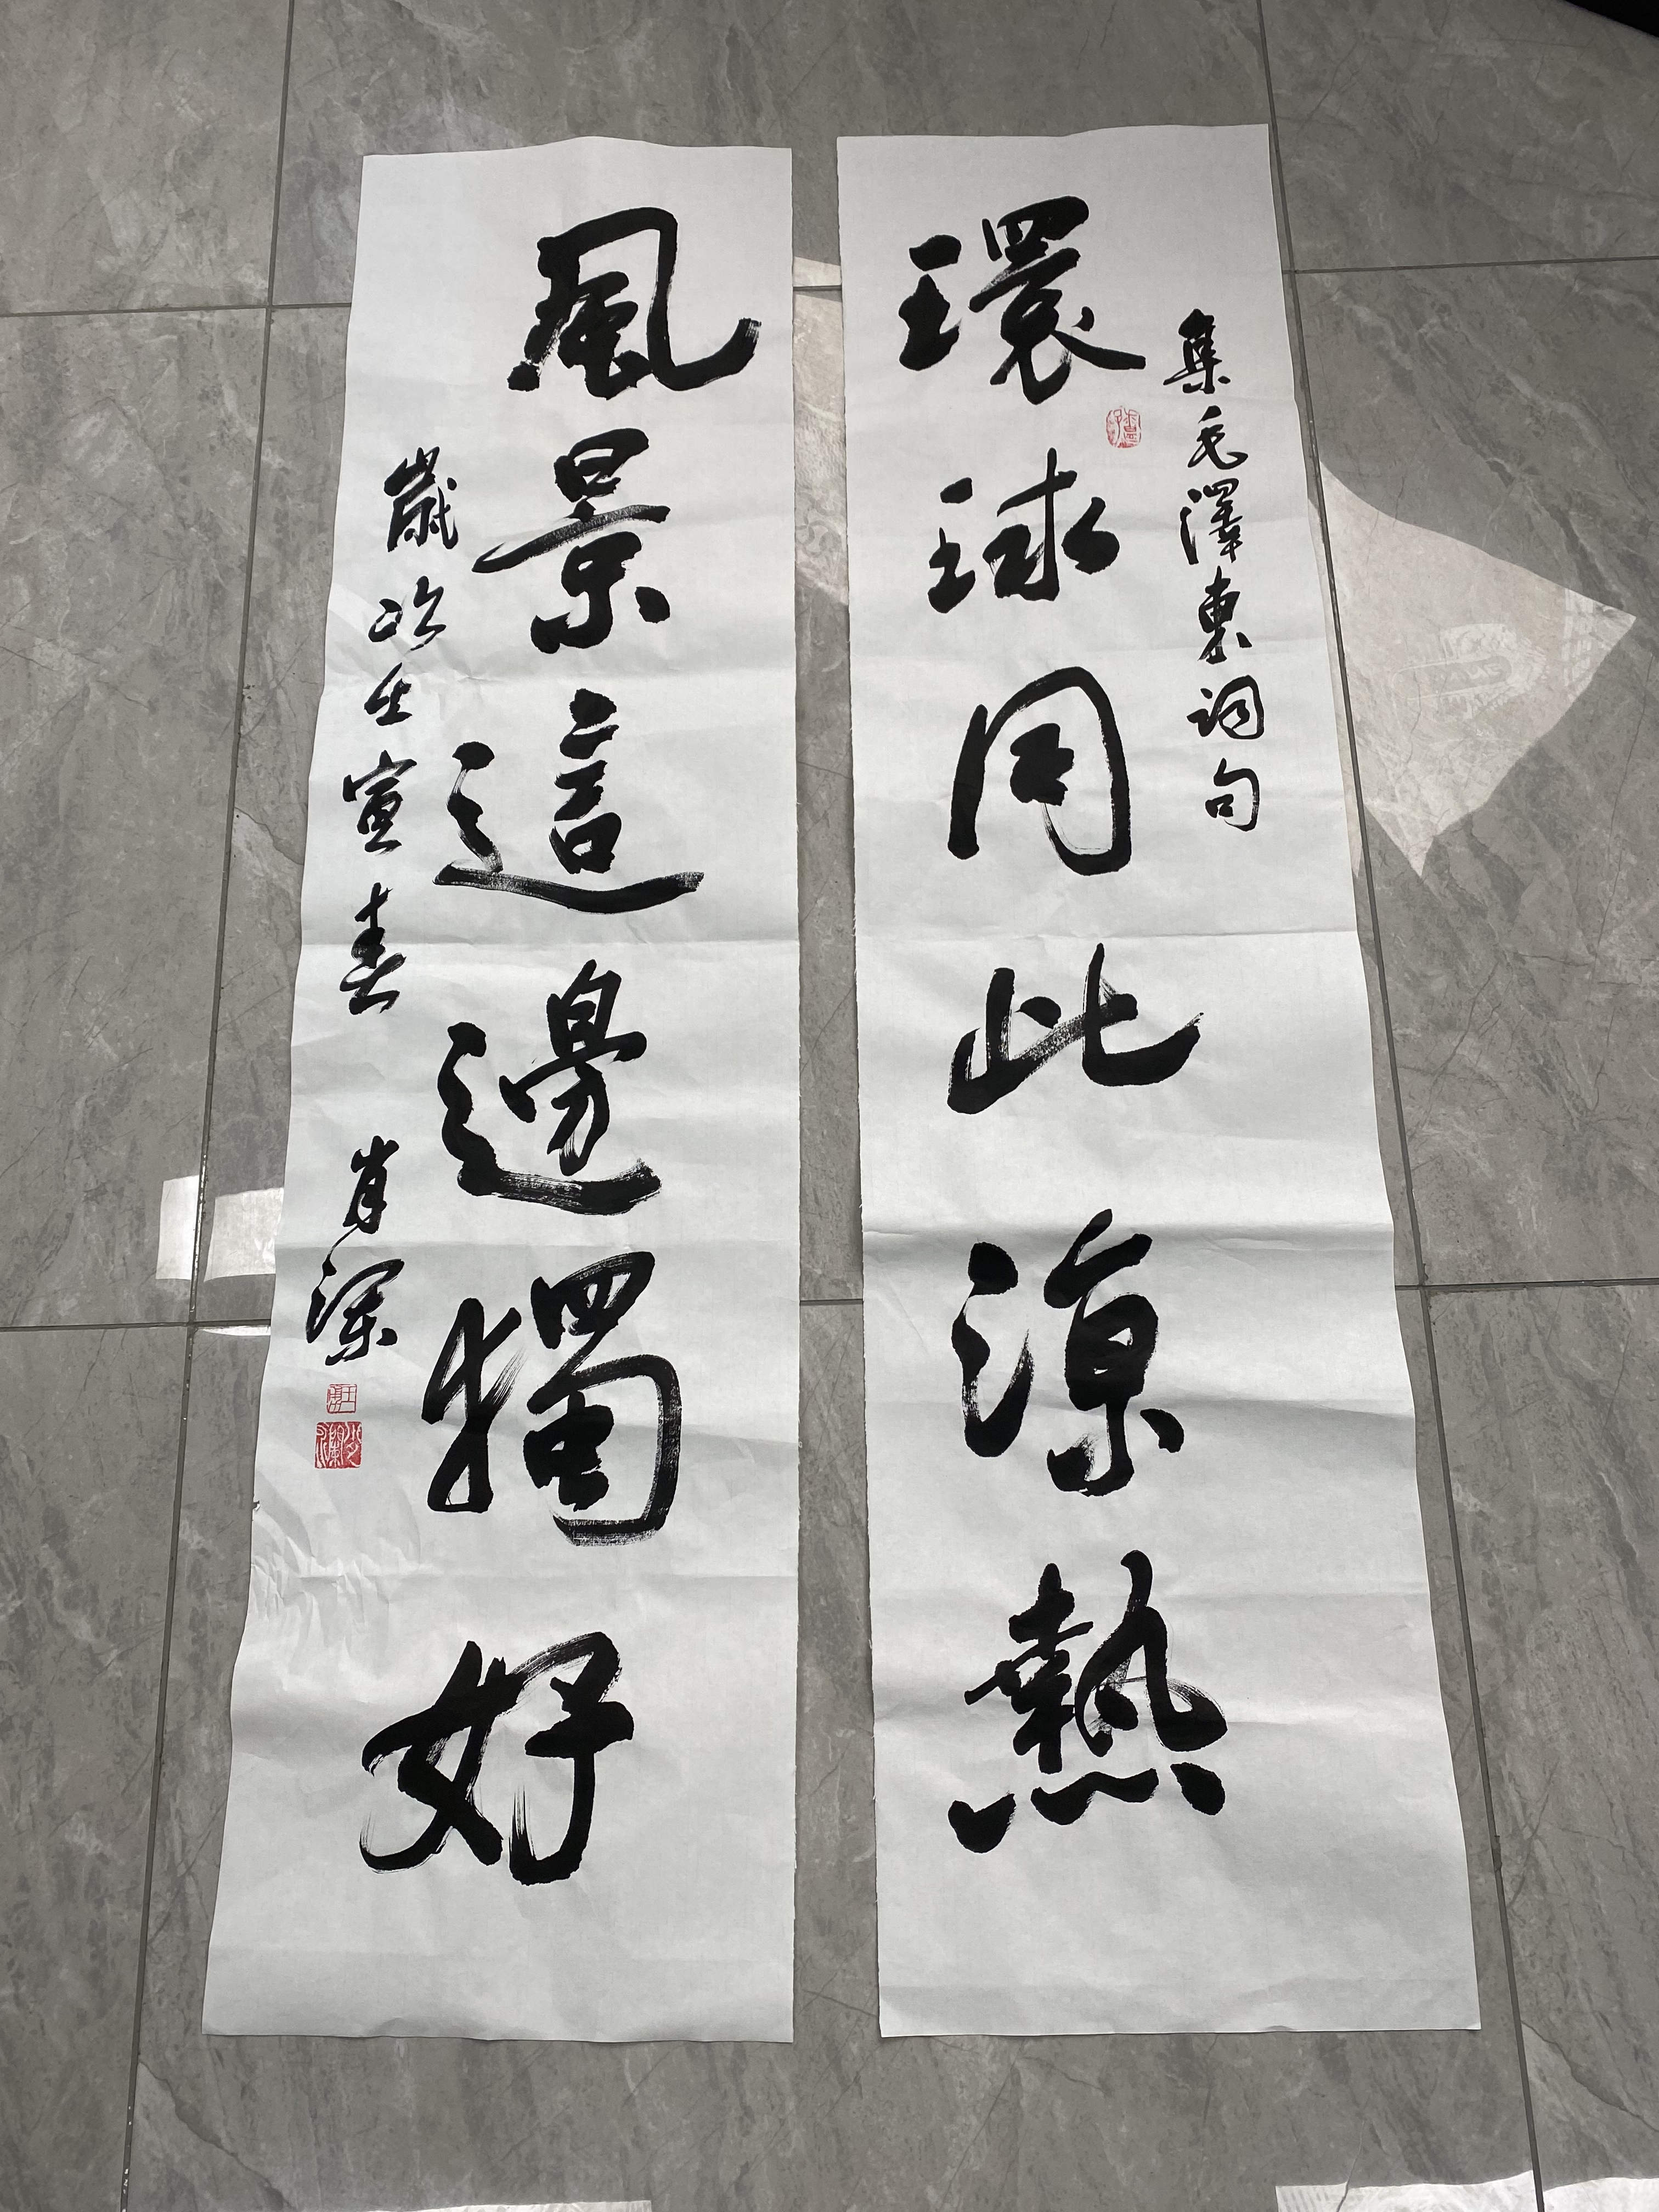 集毛澤東詞句
環球同此涼熱
風景這邊獨好
歲次壬寅春 肖瀾